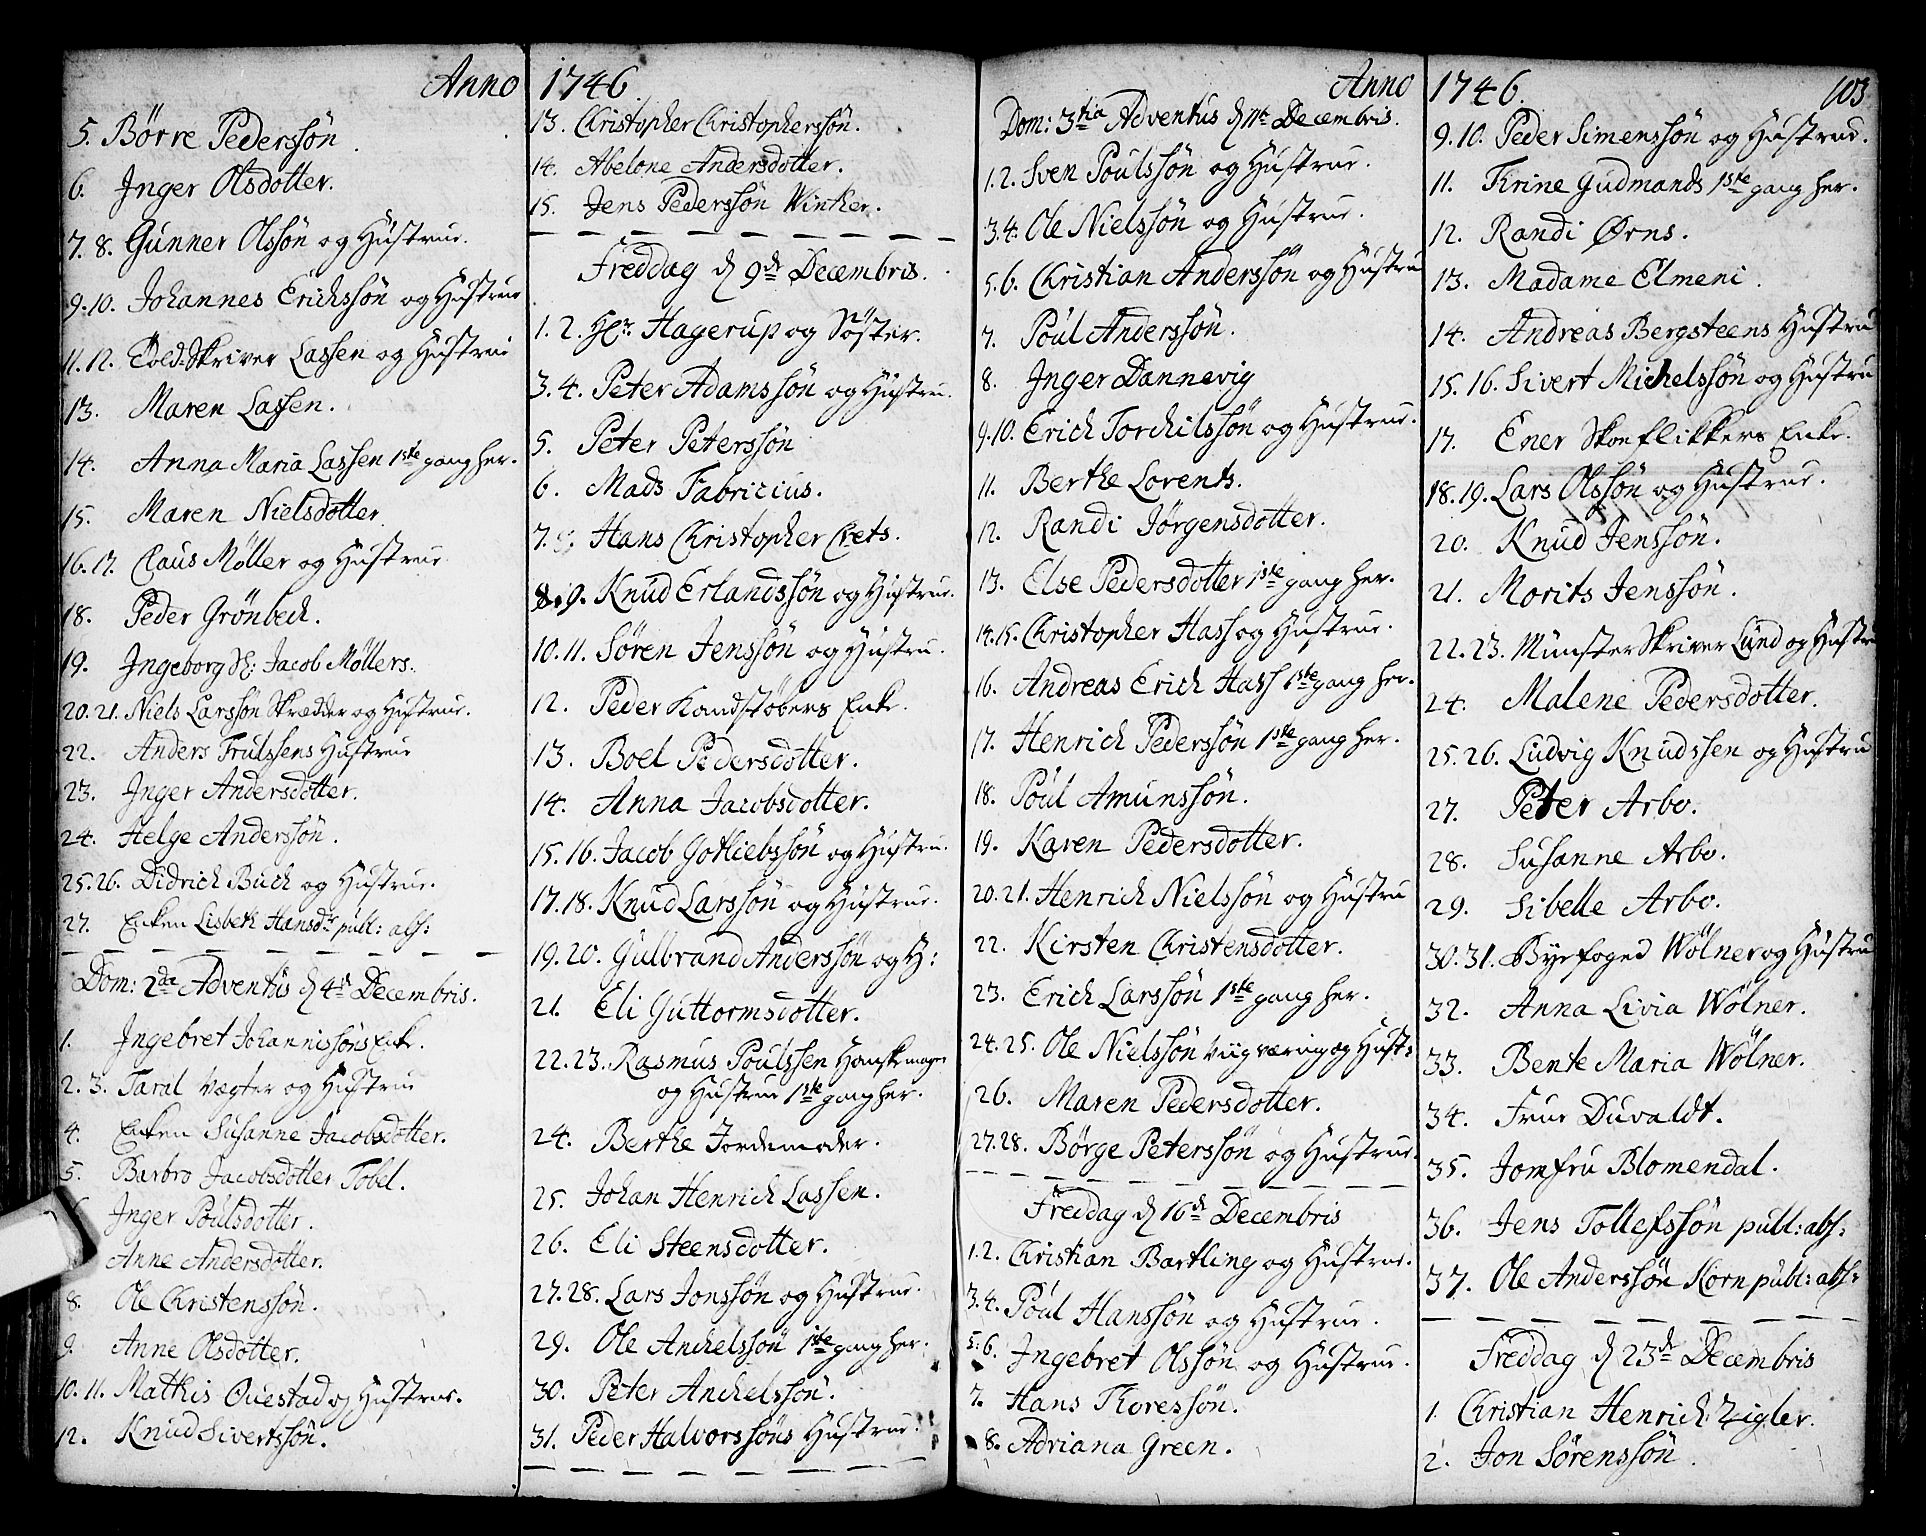 Anno 1746
5. Börre Pederssön.
6. Inger Olsdotter.
7. 8. Gunner Olssön og Hustrue.
9. 10. Johannes Erichssön og Hustrue
11. 12. Told-Skriver Lassen og Hustrue
13. Maren Lassen.
14. Anna Maria Lassen 1ste gang her.
15. Maren Nielsdotter.
16. 17. Claus Möller og Hustrue
18. Peder Grönbech.
19. Ingeborg Sl: Jacob Möllers.
20. 21. Niels Larssön Skrædder og Hustrue.
22. Anders Trulssens Hustrue
23. Inger Andersdotter.
24. Helge Anderssön.
25. 26. Didrich Buch og Hustrue.
27. Enken Lisbeth Hansdr publ: abs:
Dom: 2da Adventus d 4de Decembris.
1. Ingebret Johannissöns Enke.
2. 3. Taril Vægter og Hustrue
4. Enken Susanne Jacobsdotter.
5. Barbro Jacobsdotter Tobel.
Inger Poulsdotter.
Anne Andersdotter.
8. Ole Christenssön.
9. Anne Olsdotter.
10. 11. Mathis Questad og Hustrue.
12. Knud Sivertssön.
13. Christopher Christopherssön.
14. Abelone Andersdotter.
15. Jens Pederssön Winther.
Freddag d 9de Decembris.
1. 2. Hr. Hagerup og Söster.
3. 4. Peter Adamssön og Hustru.
5. Peter Peterssön
6. Mads Fabricius.
7. Hans Christopher Crets.
8. 9. Knud Erlandssön og Hustrue.
10. 11. Sören Jenssön og Hustru.
12. Peder Kandstöbers Enke.
13. Boel Pedersdotter.
14. Anna Jacobsdotter.
15. 16. Jacob Gotliebssön og Hustru.
17. 18. Knud Larssön og Hustrue.
19. 20. Gulbrand Anderssön og H:
21. Eli Guttormsdotter.
22. 23. Rasmus Poulssen Handskmager
og Hustrue 1ste gang her.
24. Berthe Jordemoder.
25. Johan Henrich Lassen.
26. Eli Steensdotter.
27. 28. Lars Jonssön og Hustrue.
29. Ole Anchelssön 1ste gang her.
30. Peter Anchelssön.
31. Peder Halvorssöns Hustrue.
Anno 1746. 103
Dom: 3tia Adventus d 11te Decembris.
1. 2. Sven Poulssön og Hustrue.
3. 4. Ole Nielssön og Hustrue.
5. 6. Christian Anderssön og Hustru
7. Poul Anderssön.
8. Inger Dannevig
9. 10. Erich Torchilssön og Hustrue.
11. Berthe Lorents.
12. Randi Jörgensdotter.
13. Else Pedersdotter 1ste gang her.
14. 15. Christopher Hass og Hustrue.
16. Andreas Erich Hass 1ste gang her.
17. Henrich Pederssön 1ste gang her.
18. Poul Amunssön.
19. Karen Pedersdotter.
20. 21. Henrich Nielssön og Hustru
22. Kirsten Christensdotter.
23. Erich Larssön 1ste gang her.
24. 25. Ole Nielssön Viigværing og Hust:
26. Maren Pedersdotter.
27. 28. Börge Peterssön og Hustrue.
Freddag d 16de Decembris
1. 2. Christian Bartling og Hustrue.
3. 4. Poul Hanssön og Hustrue.
5. 6. Ingebret Olssön og Hustrue.
7. Hans Thoressön.
8. Adriana Green.
9. 10. Peder Simenssön og Hustrue.
11. Trine Gudmands 1ste gang her.
12. Randi Ørns.
13. Madame Elmeni.
14. Andreas Bergsteens Hustru
15. 16. Sivert Michelssön og Hustru
17. Ener Skoeflikkers Enke.
18. 19. Lars Olssön og Hustrue.
20. Knud Jenssön.
21. Morits Jenssön.
22. 23. Münster Skriver Lund og Hustru
24. Malene Pedersdotter.
25. 26. Ludvig Knudssen og Hustru
27. Peter Arbo.
28. Susanne Arbo.
29. Sibelle Arbo.
30. 31. Byefoged Wölner og Hustru
32. Anna Livia Wölner.
33. Bente Maria Wölner.
34. Frue Duvaldt.
35. Jomfru Blomendal.
36. Jens Tollefssön publ: abs:
37. Ole Anderssön Korn publ: abs:
Freddag d 23de Decembris
1. Christian Henrich Zigler.
2. Jon Sörenssön.